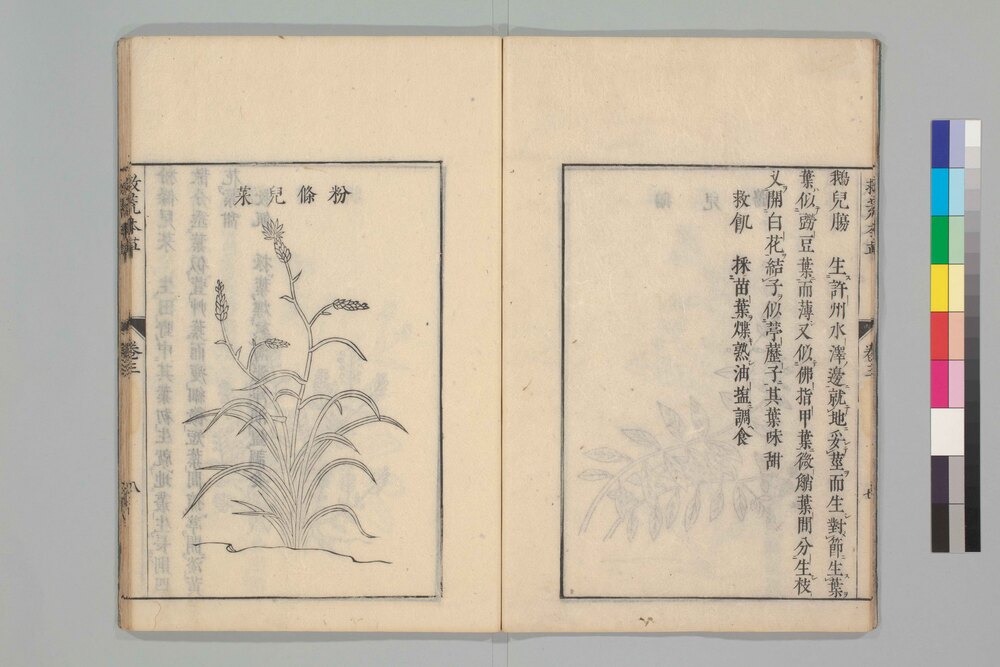 救荒本草
卷三
七
鵝兒膓　生許州水澤邊就地妥莖而生對節生葉
葉似䜺豆葉而薄又似佛指甲葉微艄葉間分生枝
叉開白花結子似葶藶子其葉味甜
救飢　採苗葉煠熟油塩調食
粉條兒菜
救荒本草
卷三
八